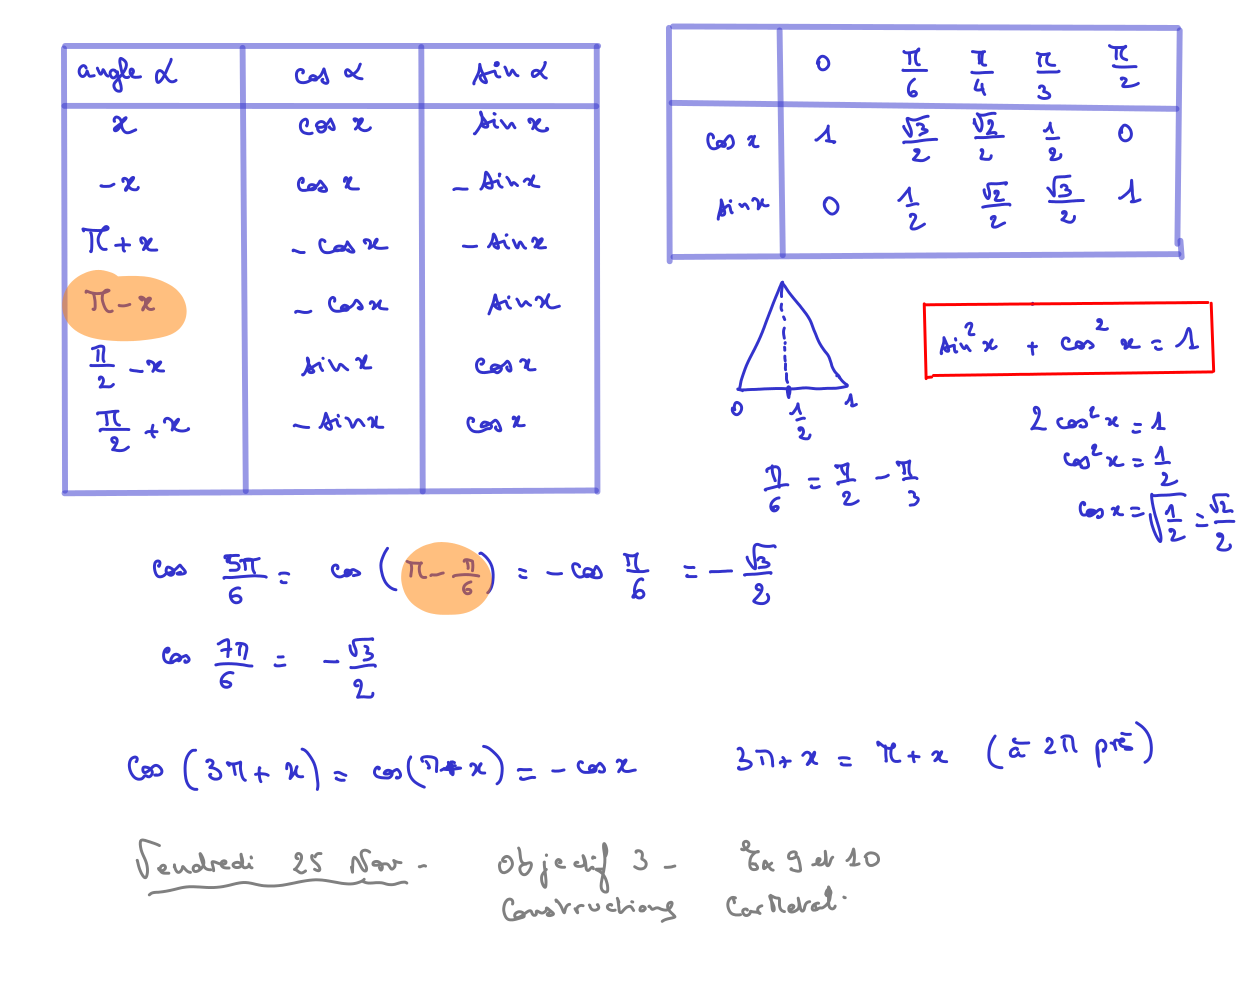 angle α cos α sin α
x cos x sin x
-x cos x - sin x
π + x - cos x - sin x
π - x - cos x sin x
π/2 - x sin x cos x
π/2 + x - sin x cos x
0 π/6 π/4 π/3 π/2
cos x 1 √3/2 √2/2 1/2 0
sin x 0 1/2 √2/2 √3/2 1
0 1/2 1
sin² x + cos² x = 1
2 cos² x = 1
cos² x = 1/2
cos x = √(1/2) = √2/2
π/6 = π/2 - π/3
cos 5π/6 = cos (π - π/6) = - cos π/6 = - √3/2
cos 7π/6 = - √3/2
cos (3π + x) = cos(π + x) = - cos x 3π + x = π + x (à 2π près)
Vendredi 25 Nov - Objectif 3 - Ex 9 et 10
Constructions CarMetal.